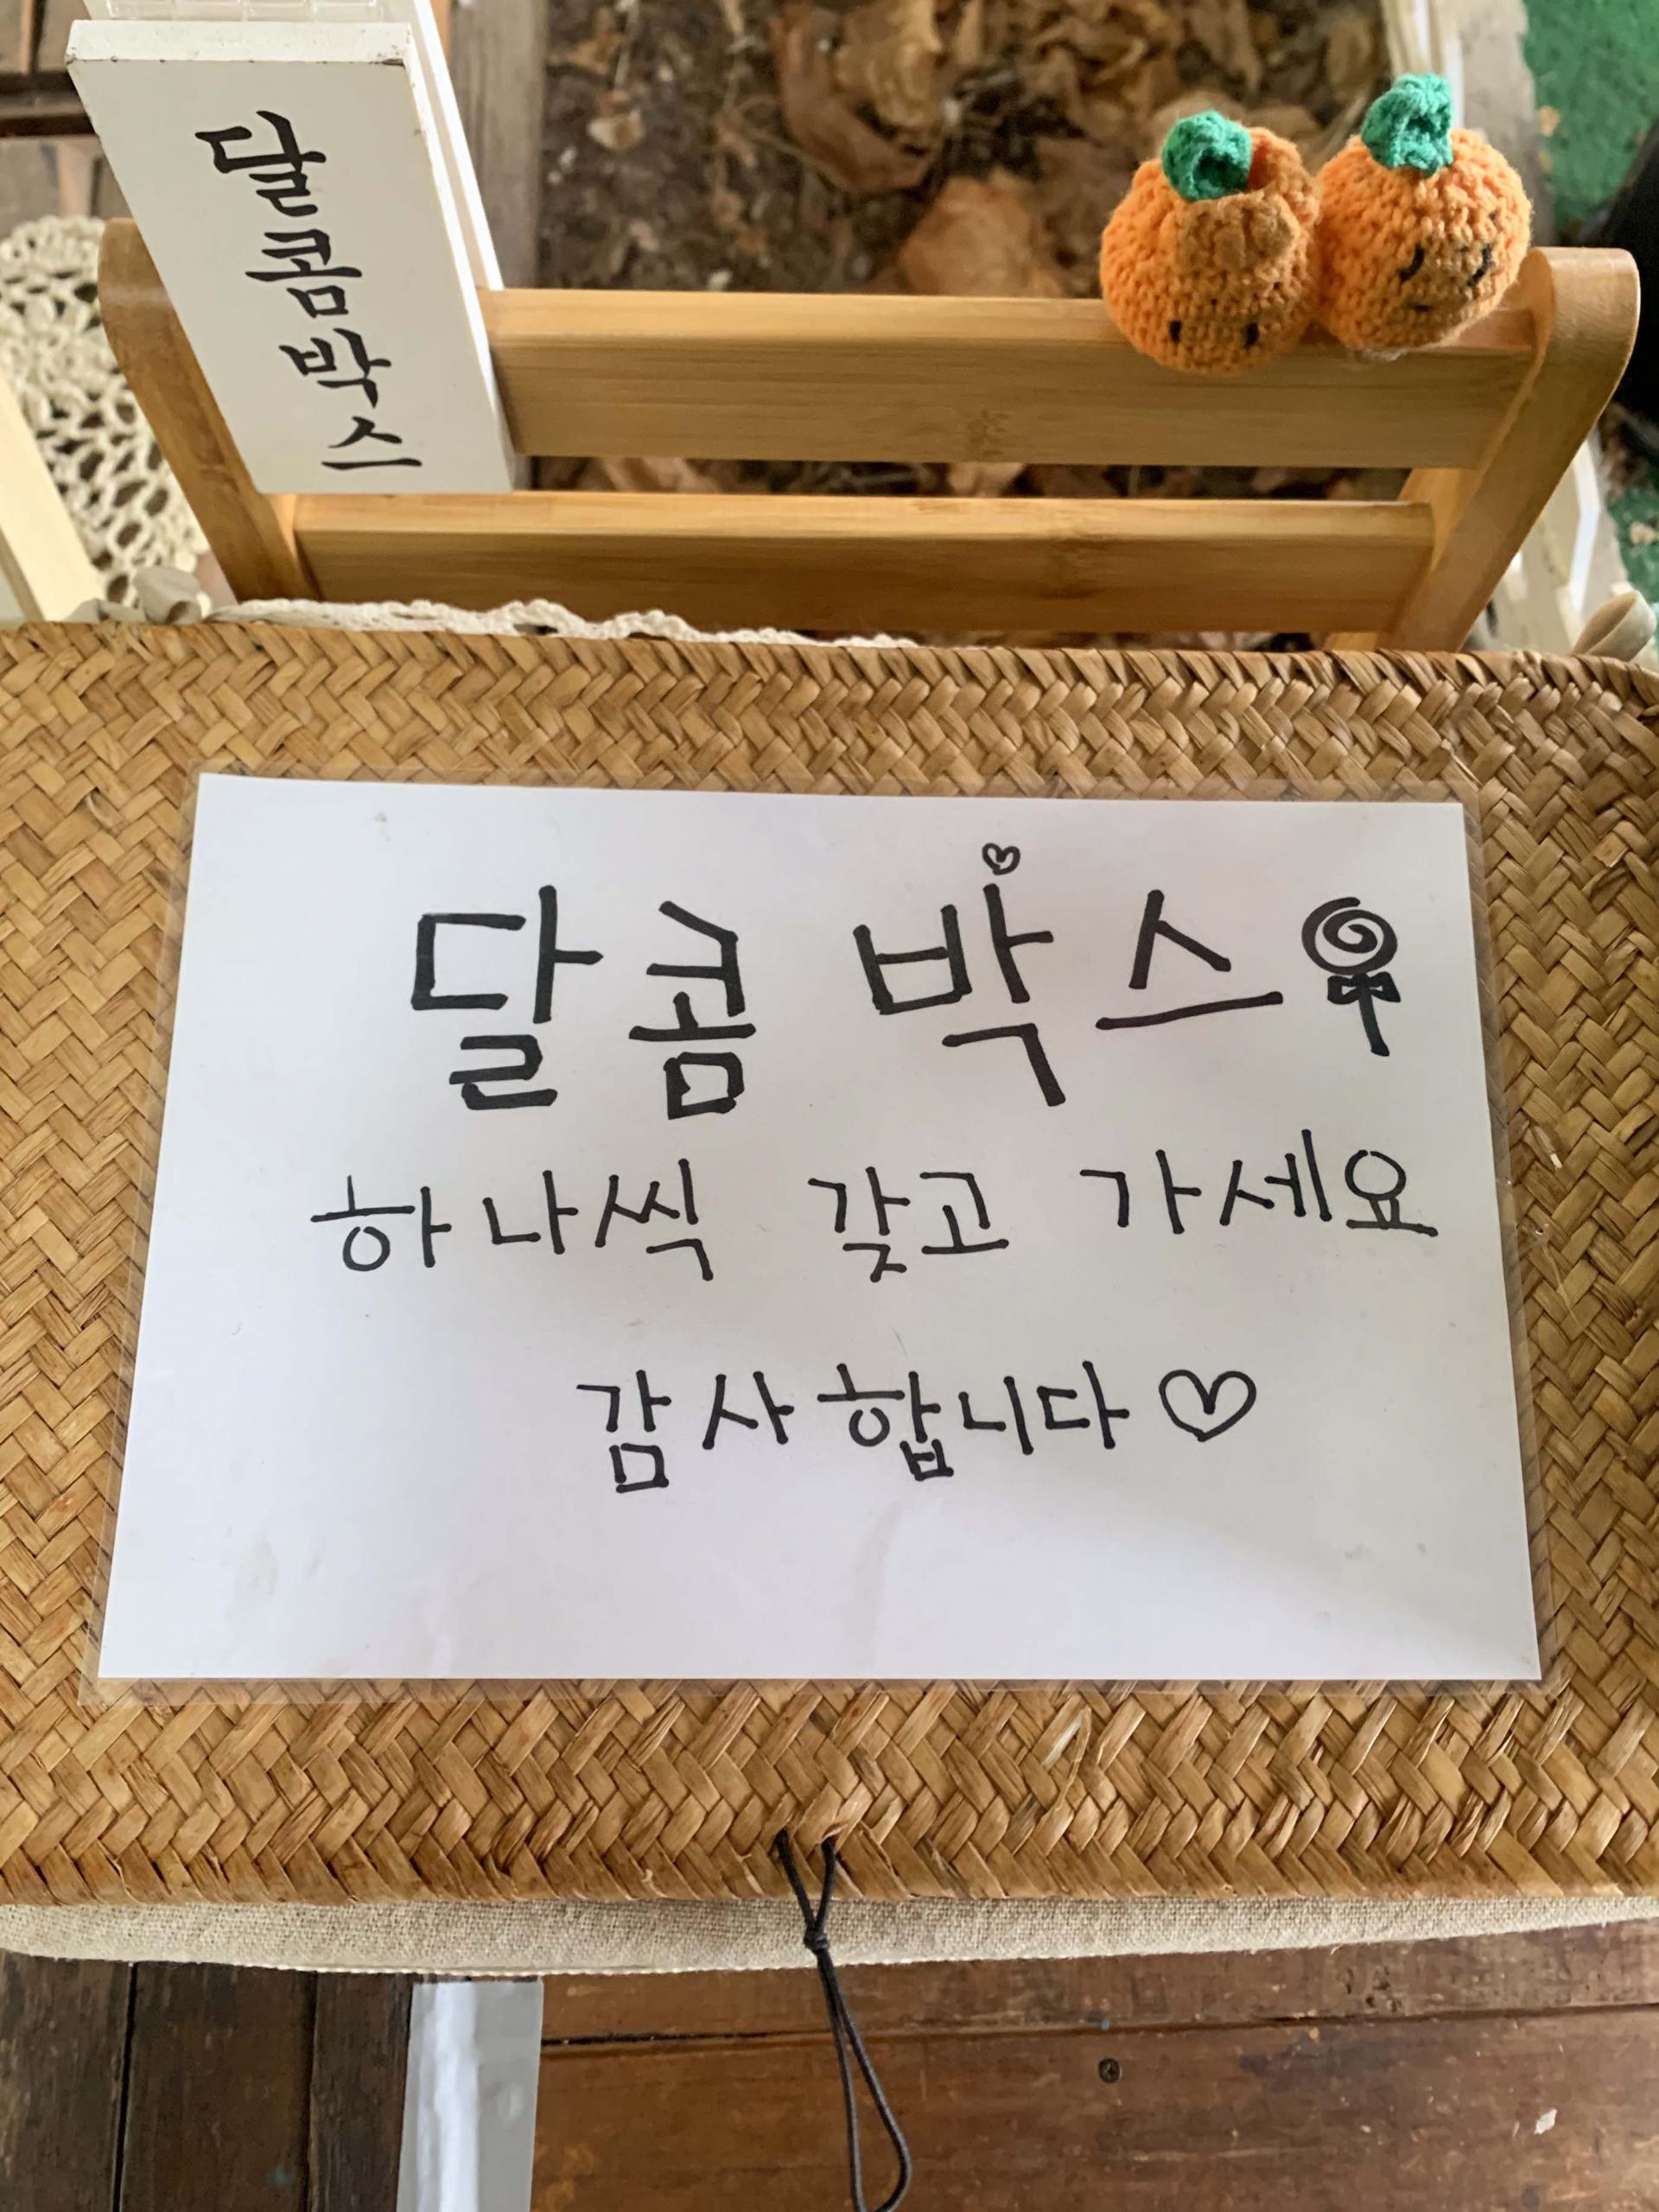 달콤박스
달콤 박스
하나씩 갖고 가세요
감사합니다♡